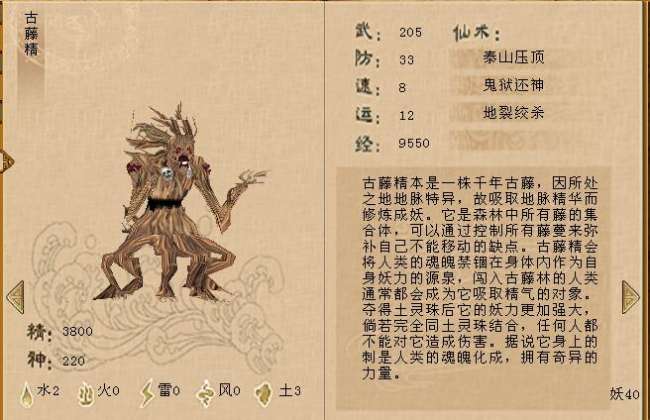 古藤精
精: 3800
神: 220
水2 火0 雷0 风0 土3
武: 205
防: 33
速: 8
运: 12
经: 9550
仙术:
泰山压顶
鬼狱还神
地裂绞杀
古藤精本是一株千年古藤，因所处
之地地脉特异，故吸取地脉精华而
修炼成妖。它是森林中所有藤的集
合体，可以通过控制所有藤蔓来弥
补自己不能移动的缺点。古藤精会
将人类的魂魄禁锢在身体内作为自
身妖力的源泉，闯入古藤林的人类
通常都会成为它吸取精气的对象。
夺得土灵珠后它的妖力更加强大，
倘若完全同土灵珠结合，任何人都
不能对它造成伤害。据说它身上的
刺是人类的魂魄化成，拥有奇异的
力量。
妖40